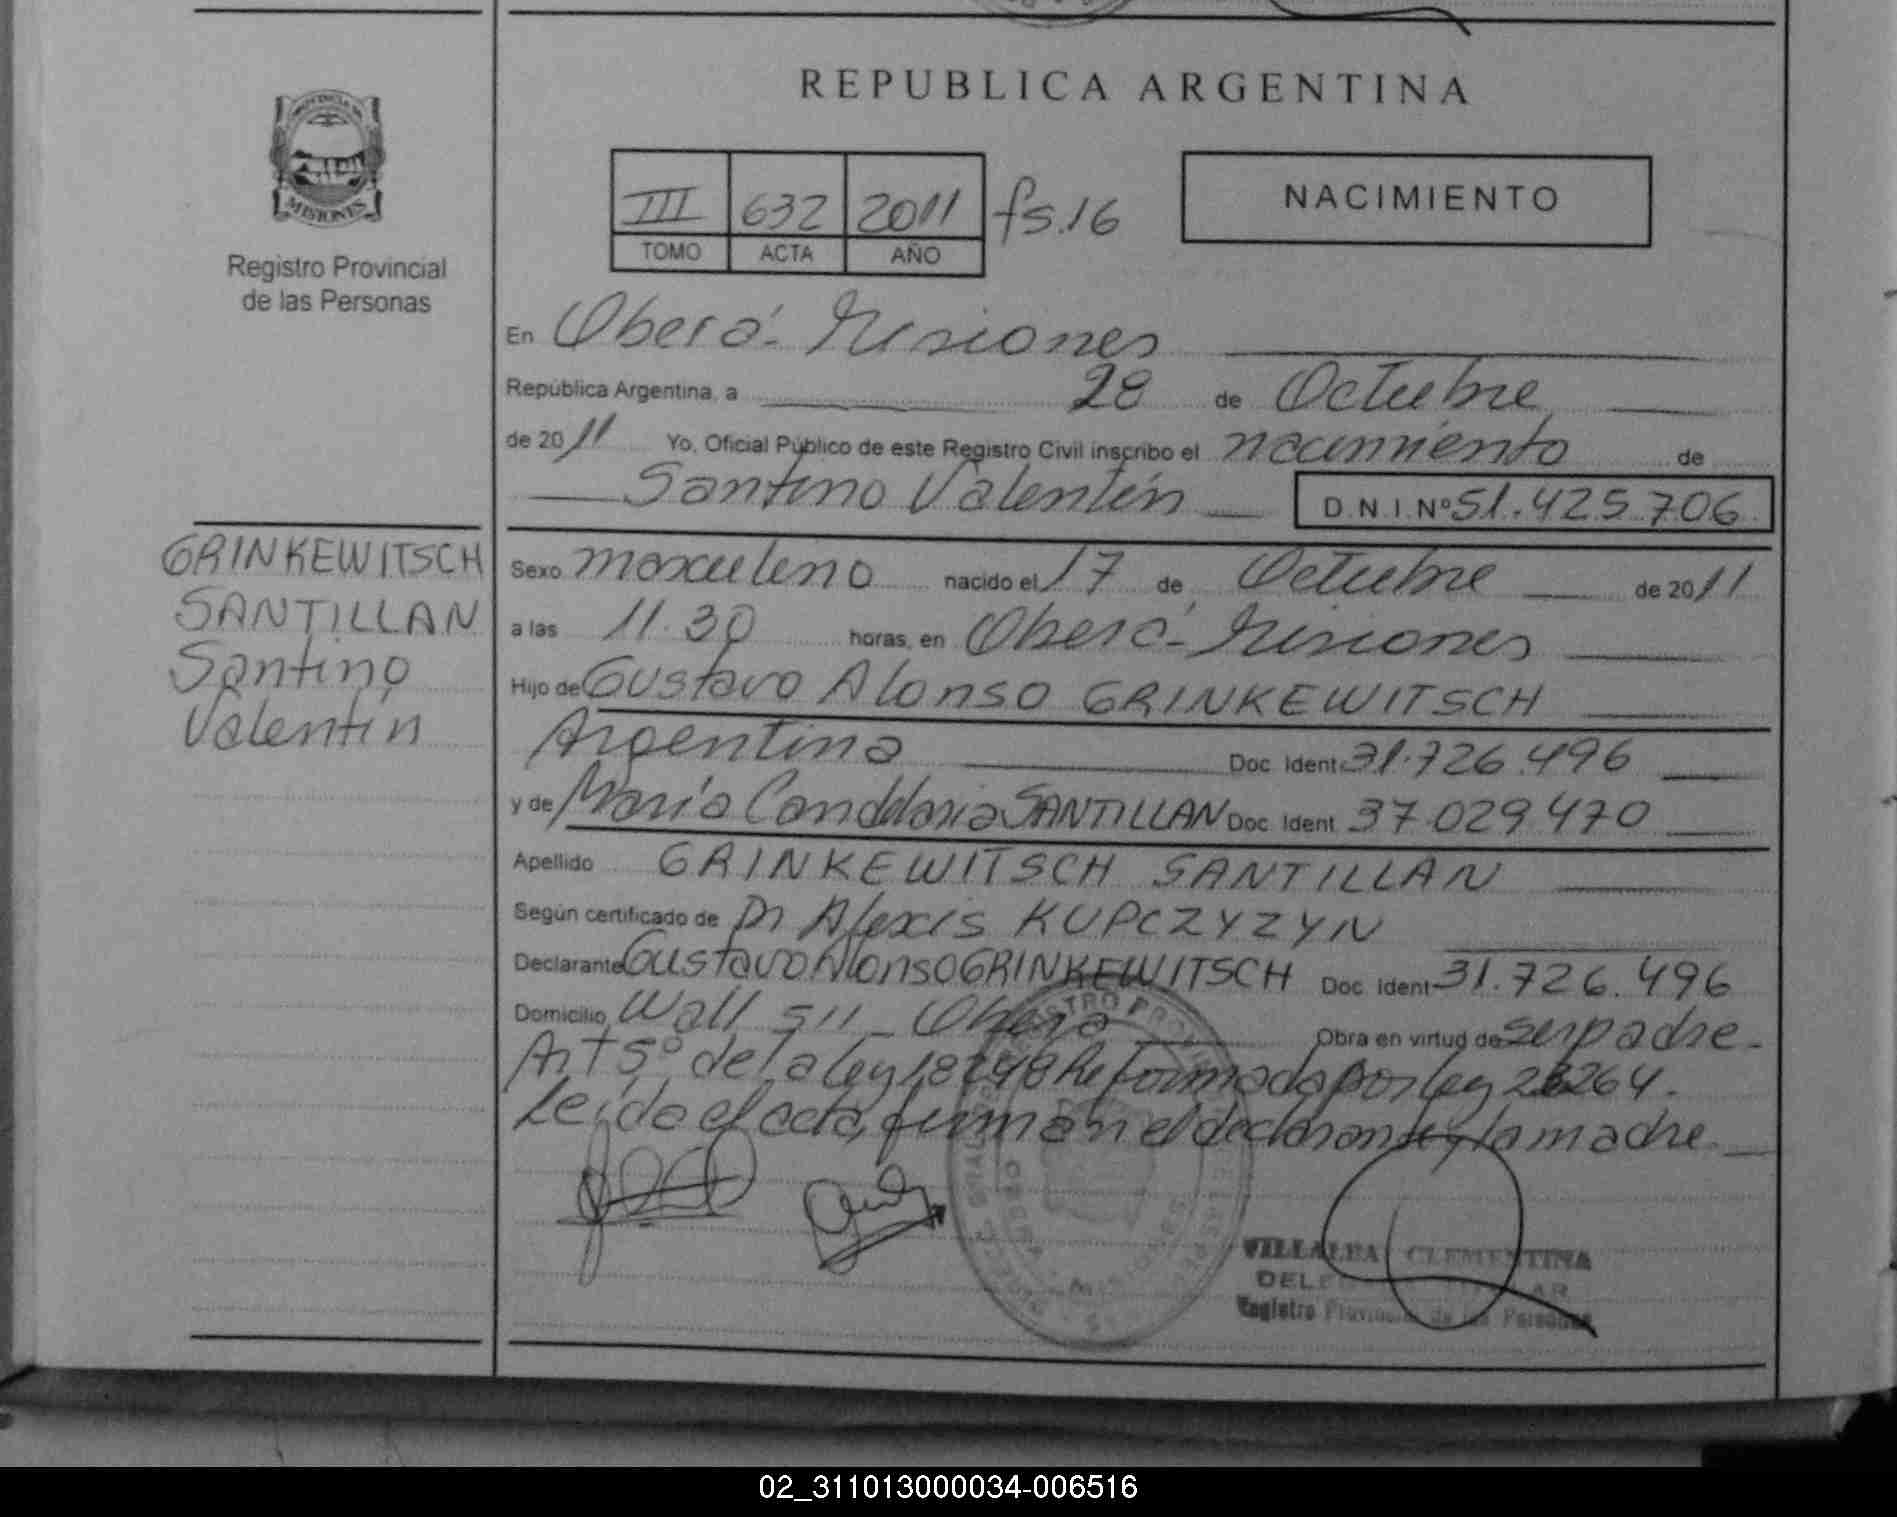 REPUBLICA ARGENTINA
PROVINCIA DE
MISIONES
Registro Provincial
de las Personas
III 632 2011 fs.16
TOMO ACTA AÑO
NACIMIENTO
En Oberá - Misiones
República Argentina, a 28 de Octubre
de 2011 Yo, Oficial Público de este Registro Civil inscribo el nacimiento de
Santino Valentín D.N.I.Nº 51.425.706
GRINKEWITSCH
SANTILLAN
Santino
Valentín
Sexo masculino nacido el 17 de Octubre de 2011
a las 11.30 horas, en Oberá - Misiones
Hijo de Gustavo Alonso GRINKEWITSCH
Argentina Doc. Ident. 31.726.496
y de María Candelaria SANTILLAN Doc. Ident. 37.029.470
Apellido GRINKEWITSCH SANTILLAN
Según certificado de Dr Alexis KUPCZYZYN
Declarante Gustavo Alonso GRINKEWITSCH Doc. Ident. 31.726.496
Domicilio Wall 511 - Oberá Obra en virtud de ser padre -
Art 5º de la ley 18248 Reformada por ley 23264.
Leída el acta, firman el declarante y la madre
VILLALBA CLEMENTINA
Registro Provincial de las Personas
02_311013000034-006516